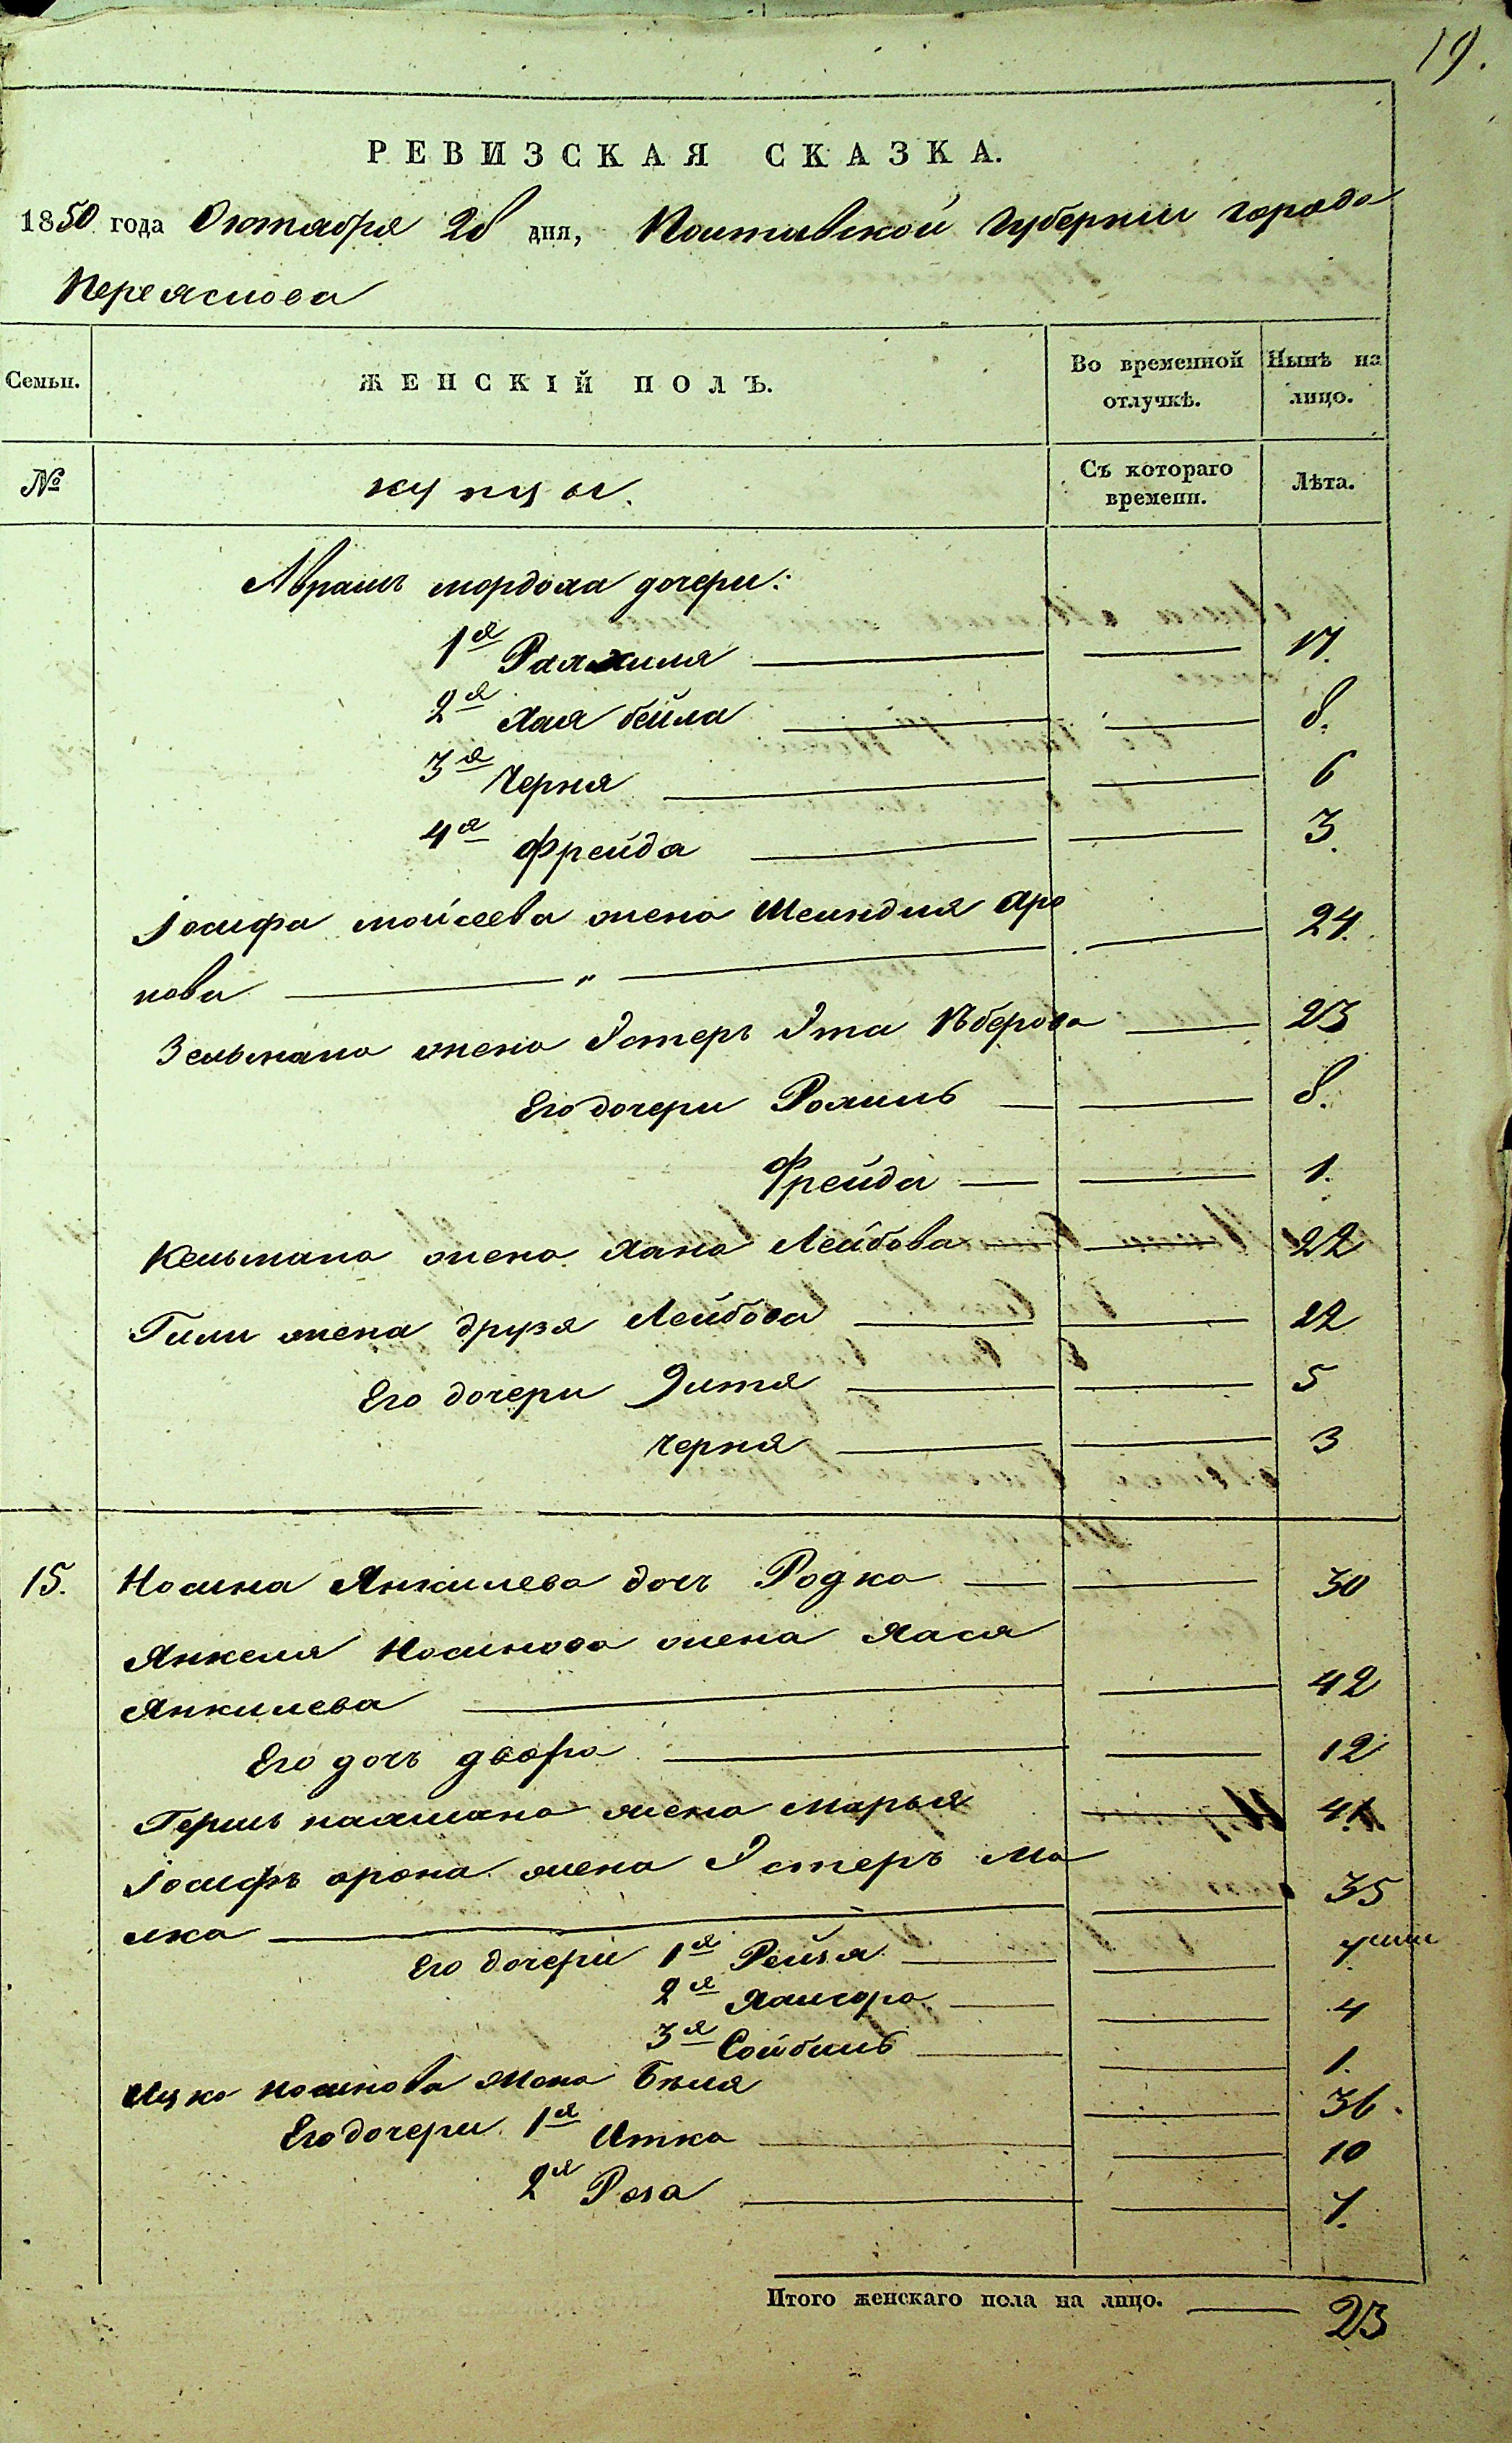 19.
РЕВИЗСКАЯ СКАЗКА.
1850 года Октября 26 дня, Полтавской Губернии города
Переяслова
Семьи. ЖЕНСКІЙ ПОЛЪ. Во временной отлучкѣ. Нынѣ на лицо.
№ купцы. Съ котораго времени. Лѣта.
Аврамъ мордоха дочери:
1я Рахиля 17.
2я Хая бейла 8.
3я Черня 6
4я Фрейда 3.
Іосифа мойсеева жена Шейндля Аро
нова " 24.
Зельмана жена Эстеръ Эта 23
Его дочери Рохиль 8.
Фрейда 1.
Кельмана жена Хана Лейбова 22
Гили жена друзя Лейбова 22
Его дочери Эштя 5
черня 3
15.Носина Янкилева дочь Родка 30
Янкеля Носинова жена Хася
Янкилева 42
Его дочь двора 12
Гершъ нахмана жена марья 41
Іосифъ арона жена Эстеръ Ма
лка 35
Его дочери 1я Рейзя 7
2я Хаисора 4
3я Сойбиль 1.
Ицко носинова жена Бѣля 36.
Его дочери 1я Итка 10
2я Роза 7.
Итого женскаго пола на лицо. 23